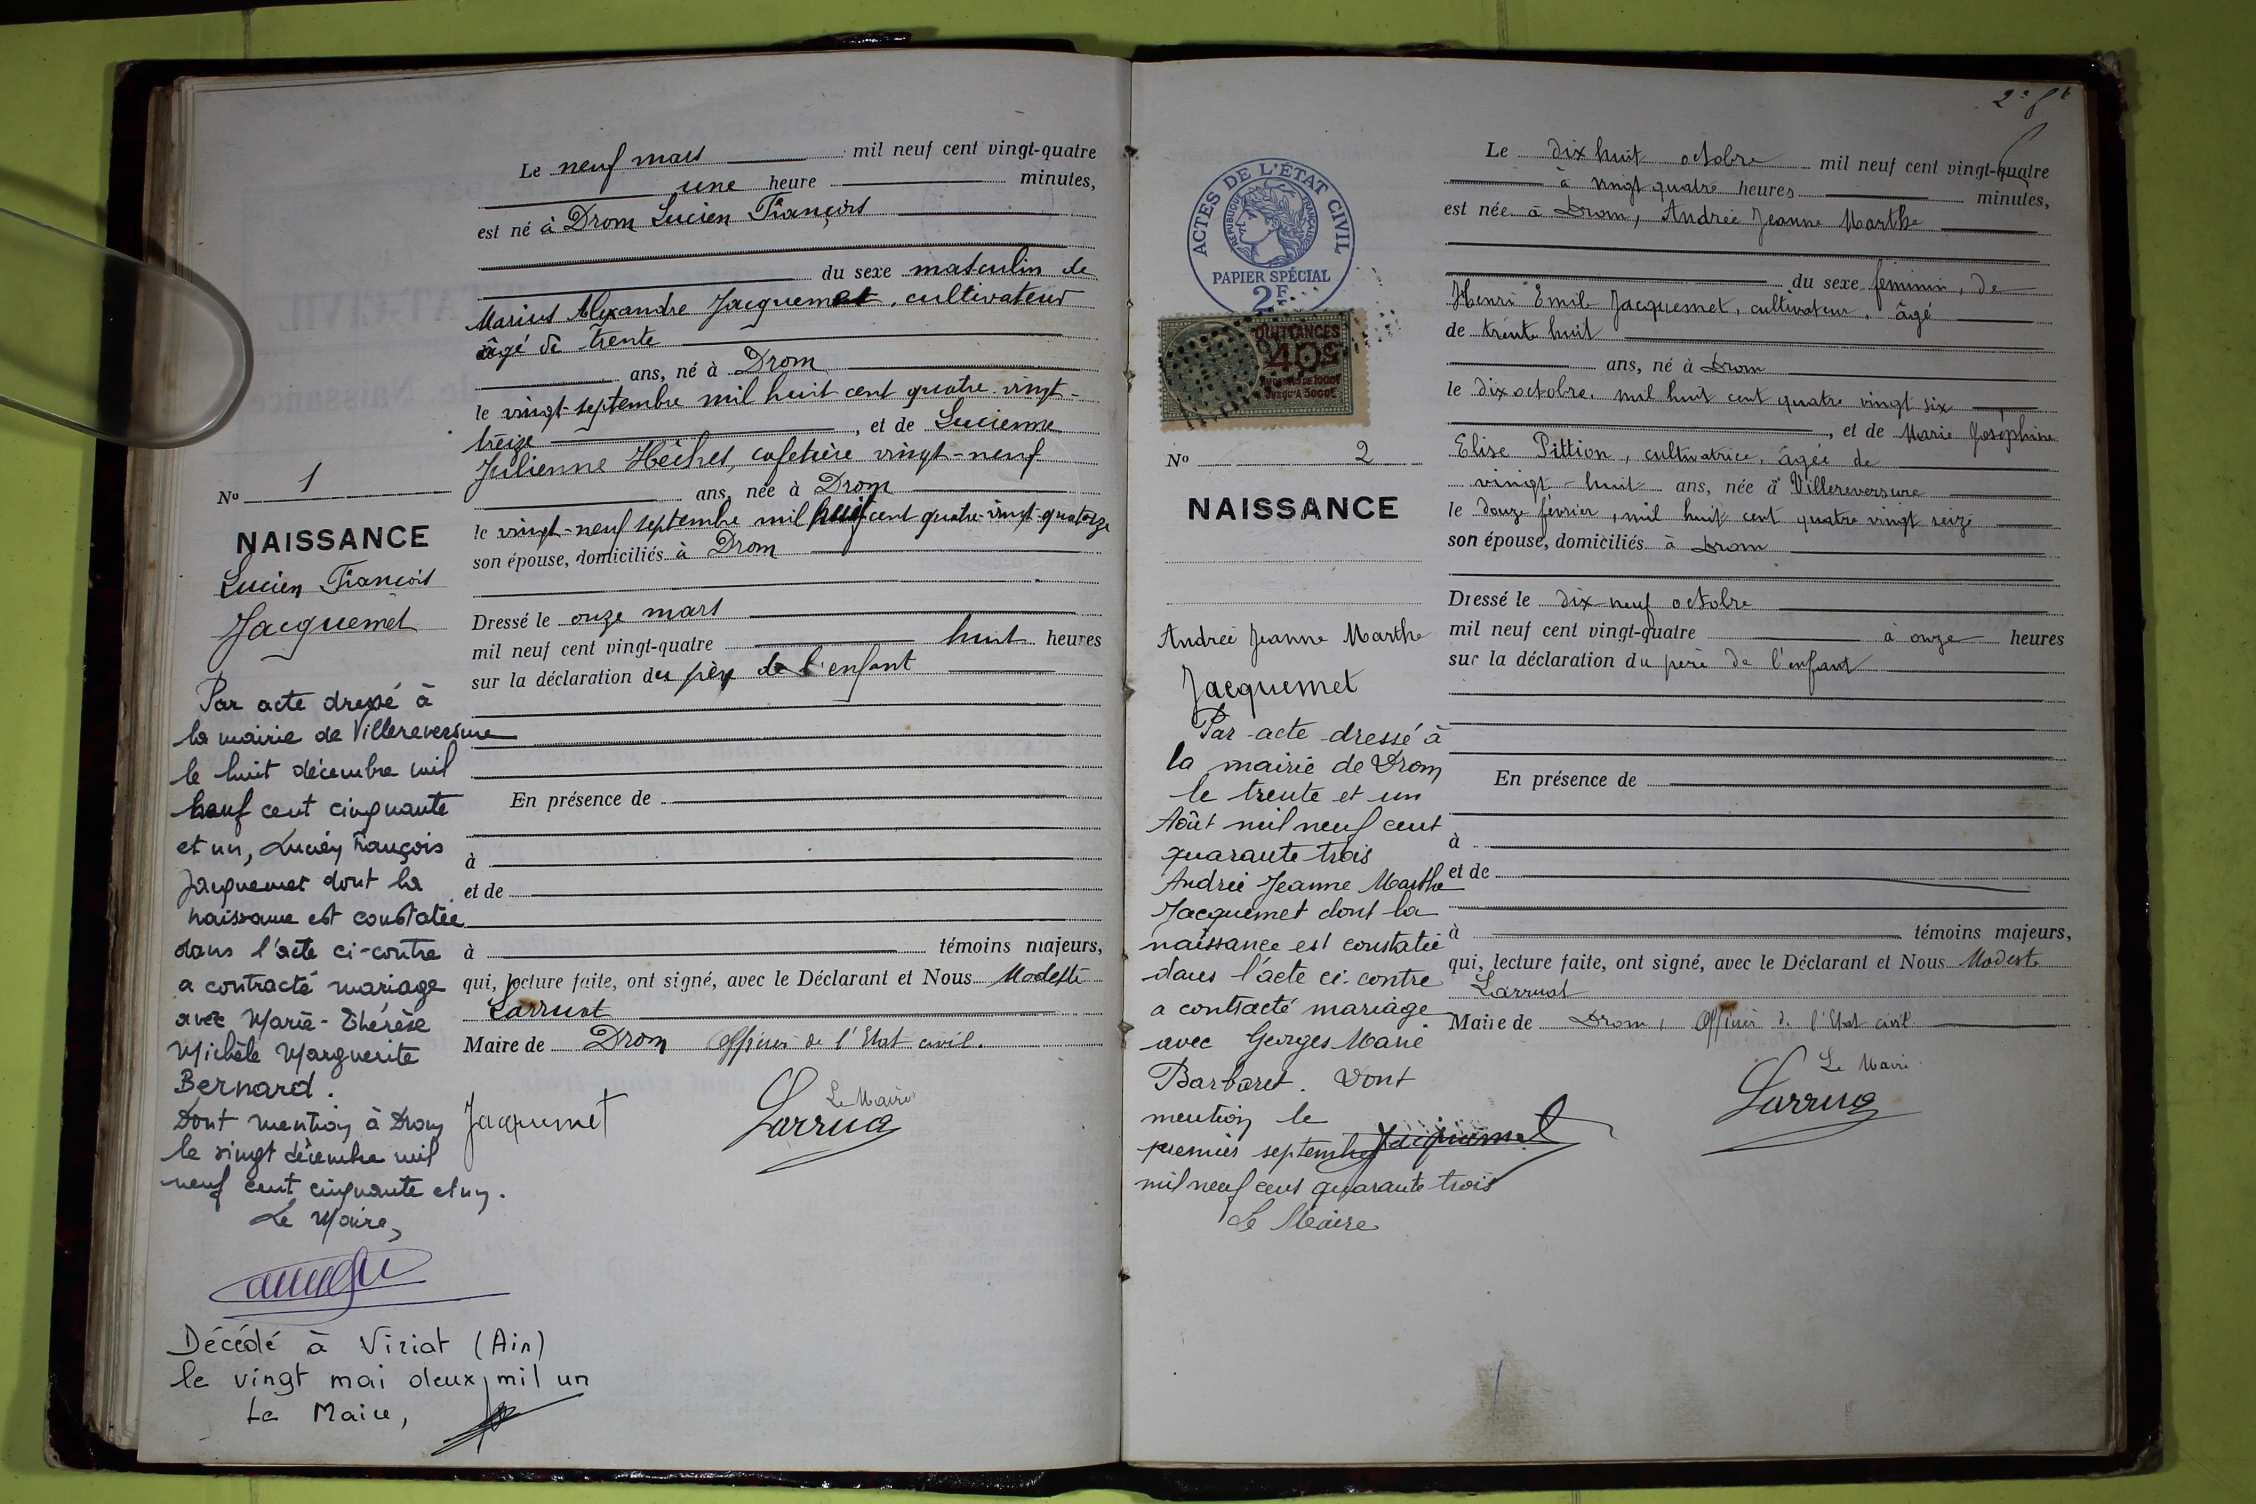 Le neuf mars mil neuf cent vingt-quatre
une heure minutes,
est né à Drom Lucien François
du sexe masculin de
Marius Alexandre Jacquemet, cultivateur
âgé de trente
ans, né à Drom
le vingt septembre mil huit cent quatre-vingt-
treize, et de Lucienne
Julienne cafetière vingt-neuf
ans, née à Drom
le vingt-neuf septembre mil huit cent quatre-vingt-quatorze
son épouse, domiciliés à Drom
Dressé le onze mars
mil neuf cent vingt-quatre huit heures
sur la déclaration du père de l'enfant
En présence de
à
et de
à témoins majeurs,
qui, lecture faite, ont signé, avec le Déclarant et Nous Modeste
Larruat
Maire de Drom Officier de l'Etat civil.
Le Maire
Jacquemet
Larruat
No 1
NAISSANCE
Lucien François
Jacquemet
Par acte dressé à
la mairie de Villereversure
le huit décembre mil
neuf cent cinquante
et un, Lucien François
Jacquemet dont la
naissance est constatée
dans l'acte ci-contre
a contracté mariage
avec Marie-Thérèse
Michèle Marguerite
Bernard.
Dont mention à Drom
le vingt décembre mil
neuf cent cinquante et un.
Le Maire,
Décédé à Viriat (Ain)
le vingt mai deux mil un
Le Maire,
ACTES DE L'ÉTAT CIVIL
RÉPUBLIQUE FRANÇAISE
PAPIER SPÉCIAL
2F.
QUITTANCES
40c
No 2
NAISSANCE
Andrée Jeanne Marthe
Jacquemet
Par acte dressé à
la mairie de Drom
le trente et un
Août mil neuf cent
quarante trois
Andrée Jeanne Marthe
Jacquemet dont la
naissance est constatée
dans l'acte ci-contre
a contracté mariage
avec Georges Marie
Barbaret. Dont
mention le
premier septembre
mil neuf cent quarante trois
Le Maire
Le dix huit octobre mil neuf cent vingt-quatre
à vingt quatre heures minutes,
est née à Drom, Andrée Jeanne Marthe
du sexe féminin, de
Henri Emile Jacquemet, cultivateur, âgé
de trente huit
ans, né à Drom
le dix octobre, mil huit cent quatre vingt six
, et de Marie Joséphine
Elise Pittion, cultivatrice, âgée de
vingt-huit ans, née à Villereversure
le douze février, mil huit cent quatre vingt seize
son épouse, domiciliés à Drom
Dressé le dix-neuf octobre
mil neuf cent vingt-quatre à onze heures
sur la déclaration du père de l'enfant
En présence de
à
et de
à témoins majeurs,
qui, lecture faite, ont signé, avec le Déclarant et Nous Modeste
Larruat
Maire de Drom, Officier de l'Etat civil
Le Maire
Larruat
Jacquemet